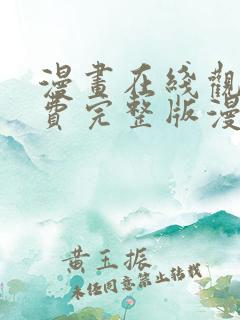 漫畫在綫觀
費完整版漫
黄玉振
未经同意禁止转载